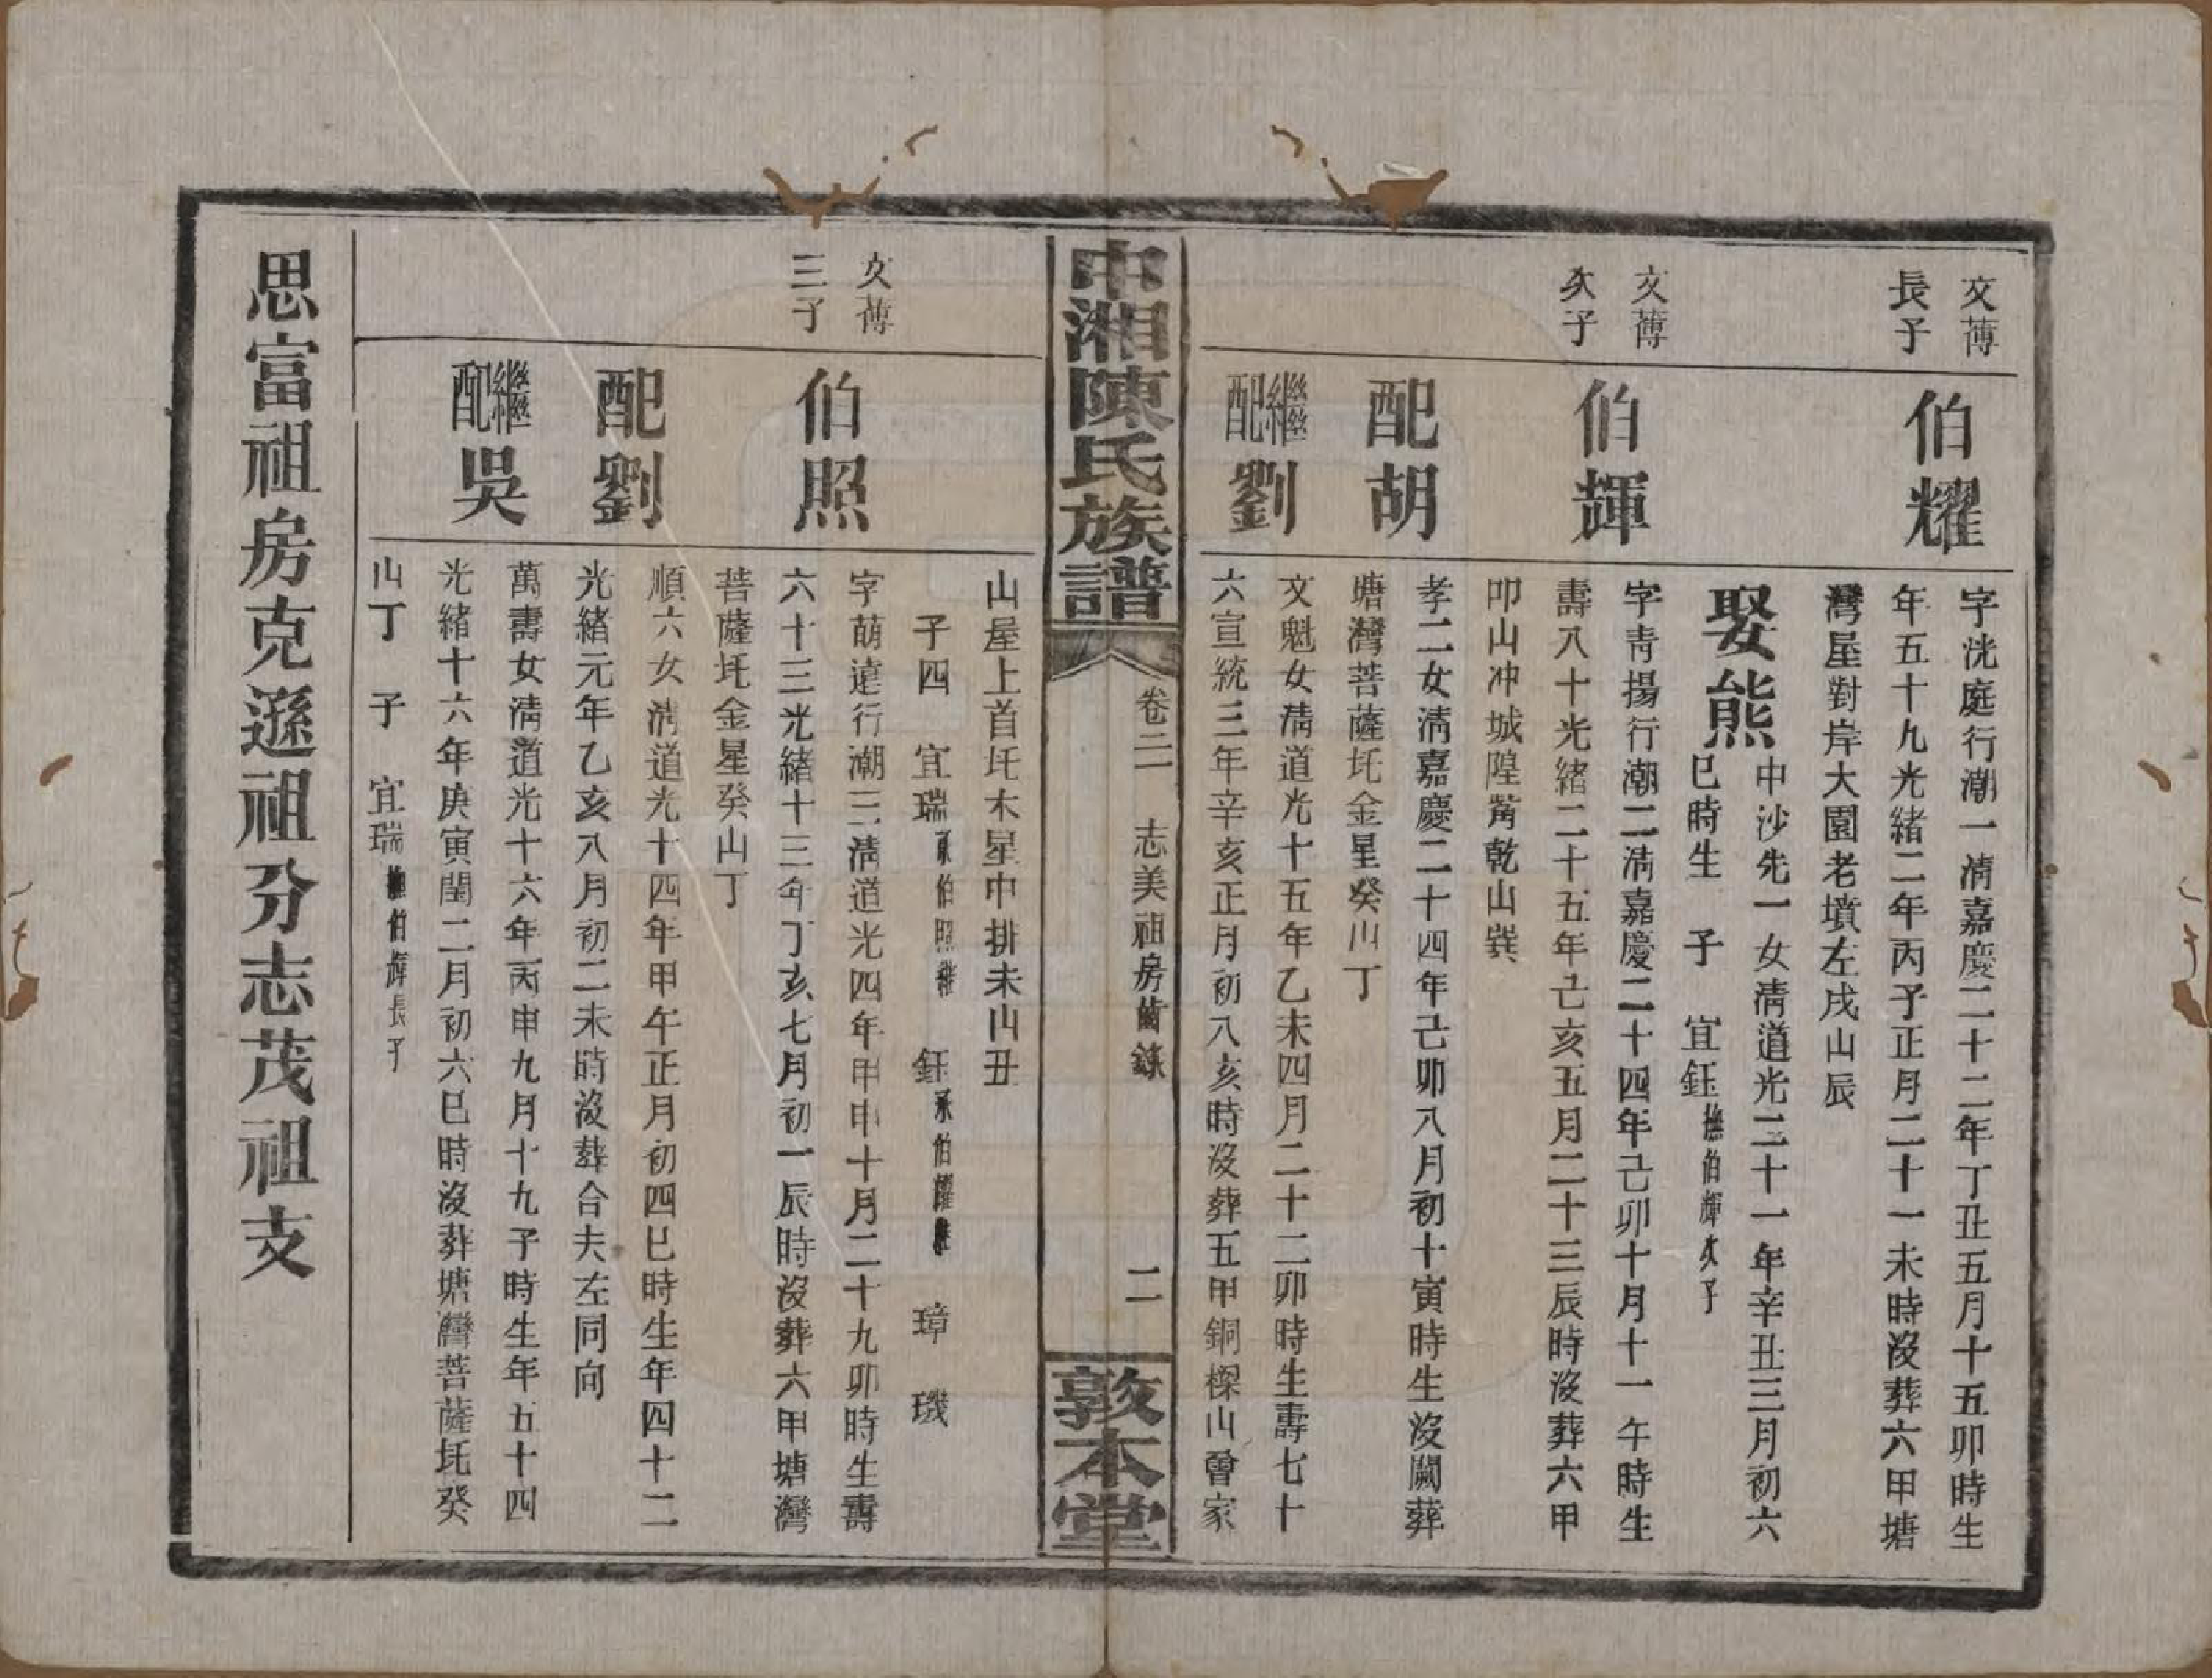 文薄
長子
伯耀
字洸庭行潮一清嘉慶二十二年丁丑五月十五卯時生
年五十九光緒二年丙子正月二十一未時沒葬六甲塘
灣屋對岸大園老墳左戌山辰
娶熊
中沙先一女清道光二十一年辛丑三月初六
巳時生 子 宜鈺撫伯輝次子
文薄
次子
伯輝
字青揚行潮二清嘉慶二十四年己卯十月十一午時生
壽八十光緒二十五年己亥五月二十三辰時沒葬六甲
卬山冲城隍觜乾山巽
配胡
孝二女清嘉慶二十四年己卯八月初十寅時生沒闕葬
塘灣菩薩圫金星癸山丁
繼配劉
文魁女清道光十五年乙未四月二十二卯時生壽七十
六宣統三年辛亥正月初八亥時沒葬五甲銅樑山曾家
中湘陳氏族譜
卷三 志美祖房齒錄
二
敦本堂
山屋上首圫木星中排未山丑
子四 宜瑞承伯照繼 鈺承伯耀繼 璋 璣
文薄
三子
伯照
字萌達行潮三清道光四年甲申十月二十九卯時生壽
六十三光緒十三年丁亥七月初一辰時沒葬六甲塘灣
菩薩圫金星癸山丁
配劉
順六女清道光十四年甲午正月初四巳時生年四十二
光緒元年乙亥八月初二未時沒葬合夫左同向
繼配吳
萬壽女清道光十六年丙申九月十九子時生年五十四
光緒十六年庚寅閏二月初六巳時沒葬塘灣菩薩圫癸
山丁 子 宜瑞撫伯輝長子
思富祖房克遜祖分志茂祖支